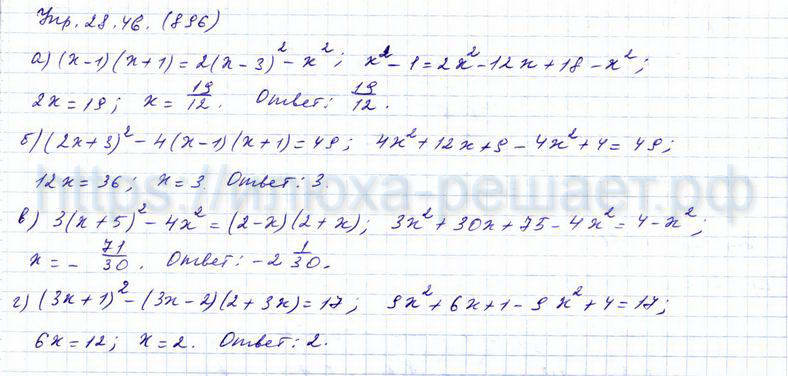 Упр. 28.46. (896)
а) (x-1)(x+1)=2(x-3)²-x²; x²-1=2x²-12x+18-x²;
2x=19; x=19/12. Ответ: 19/12.
б) (2x+3)²-4(x-1)(x+1)=49; 4x²+12x+9-4x²+4=49;
12x=36; x=3. Ответ: 3.
https://ипоха-решает.рф
в) 3(x+5)²-4x²=(2-x)(2+x); 3x²+30x+75-4x²=4-x²;
x=-71/30. Ответ: -2 1/30.
г) (3x+1)²-(3x-2)(2+3x)=17; 9x²+6x+1-9x²+4=17;
6x=12; x=2. Ответ: 2.